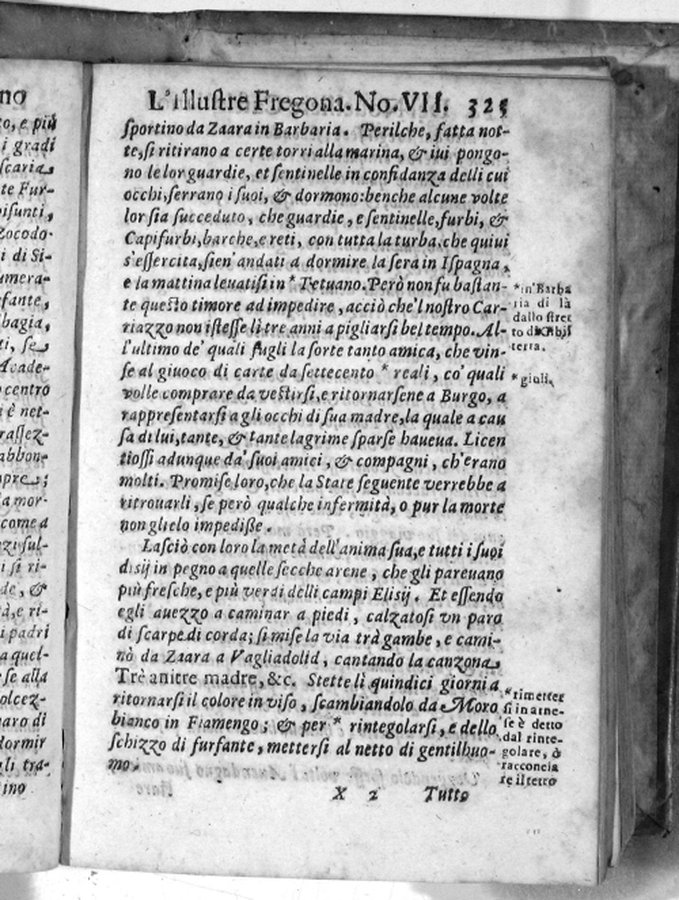 no
o, e più
i gradi
scaria,
te Fur-
pisunti,
Zocodo-
i di Si-
umera-
efante,
bagia,
ti, se
Acade-
o centro
i è net-
rassez-
abbon-
pre;
a mor-
come a
zi sul-
i si ri-
de, &
tà, e ri-
i padri
a quel-
se alla
olcez-
naro di
dormir
gli tra-
ino
L'Illustre Fregona. No. VII. 325
sportino da Zaara in Barbaria. Perilche, fatta not-
te, si ritirano a certe torri alla marina, & iui pongo-
no le lor guardie, et sentinelle in confidanza delli cui
occhi, serrano i suoi, & dormono: benche alcune volte
lor sia succeduto, che guardie, e sentinelle, furbi, &
Capifurbi, barche, e reti, con tutta la turba, che quiui
s'essercita, sien' andati a dormire la sera in Ispagna,
e la mattina leuatisi in * Tetuano. Però non fu bastan-
te questo timore ad impedire, acciò che'l nostro Car-
riazzo non istesse li tre anni a pigliarsi bel tempo. Al-
l'ultimo de' quali fugli la sorte tanto amica, che vin-
se al giuoco di carte da settecento * reali, co' quali
volle comprare da vestirsi, e ritornarsene a Burgo, a
rappresentarsi a gli occhi di sua madre, la quale a cau
sa di lui, tante, & tante lagrime sparse haueua. Licen
tiossi adunque da' suoi amici, & compagni, ch'erano
molti. Promise loro, che la State seguente verrebbe a
ritrouarli, se però qualche infermità, o pur la morte
non glielo impedisse.
Lasciò con loro la metà dell'anima sua, e tutti i suoi
disij in pegno a quelle secche arene, che gli pareuano
più fresche, e più verdi delli campi Elisij. Et essendo
egli auezzo a caminar a piedi, calzatosi vn paro
di scarpe di corda; si mise la via trà gambe, e cami-
nò da Zaara a Vagliadolid, cantando la canzona
Trè anitre madre, &c. Stette li quindici giorni a
ritornarsi il colore in viso, scambiandolo da Moro
bianco in Fiamengo; & per * rintegolarsi, e dello
schizzo di furfante, mettersi al netto di gentilhuo-
mo.
* in Barba
ria di là
dallo stret
to di Gibil
terra.
* giuli.
* rimetter
si in arne-
se è detto
dal rinte-
golare, ò
racconcia
re il tetto
X 2 Tutto